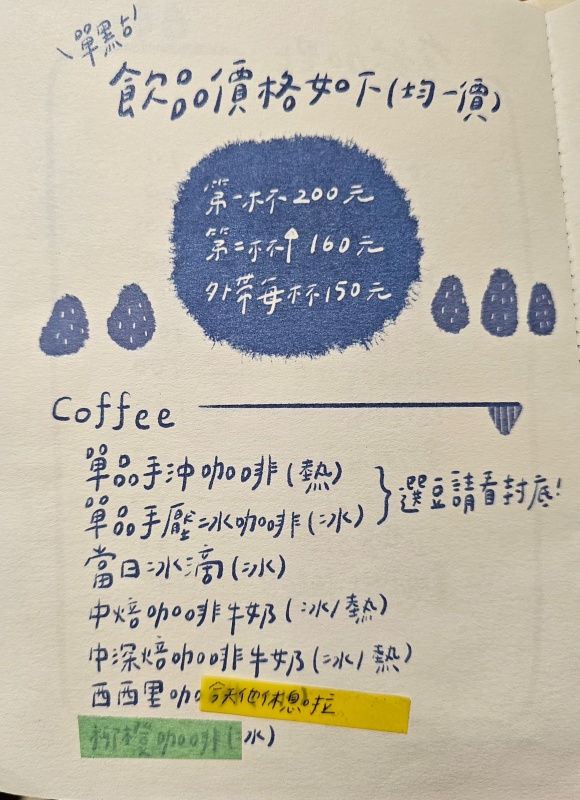 單點
飲品價格如下(均一價)
第一杯 200元
第二杯↑ 160元
外帶每杯150元
Coffee
單品手沖咖啡(熱)
單品手壓冰咖啡(冰)
選豆請看封底!
當日冰滴(冰)
中焙咖啡牛奶(冰/熱)
中深焙咖啡牛奶(冰/熱)
西西里咖
今天他休息啦
柳橙咖啡(冰)